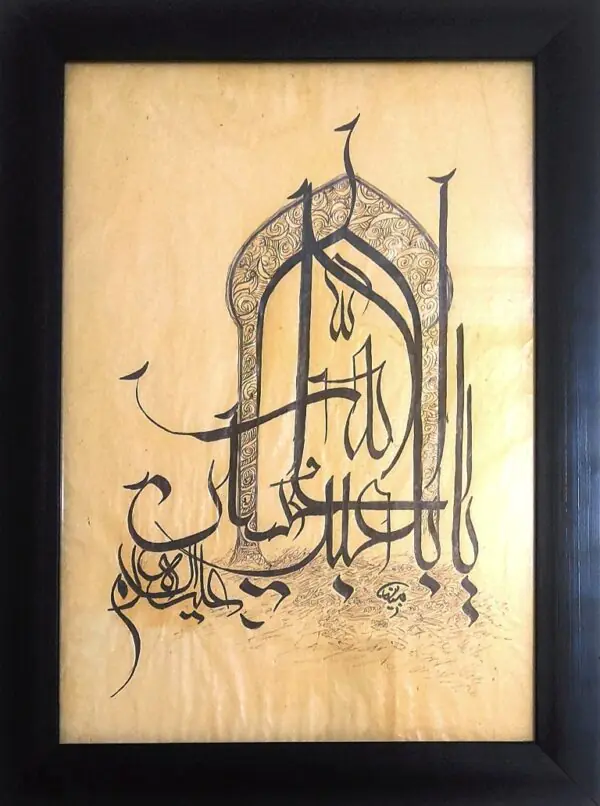 یا اباعبدالله الحسین
علیه السلام